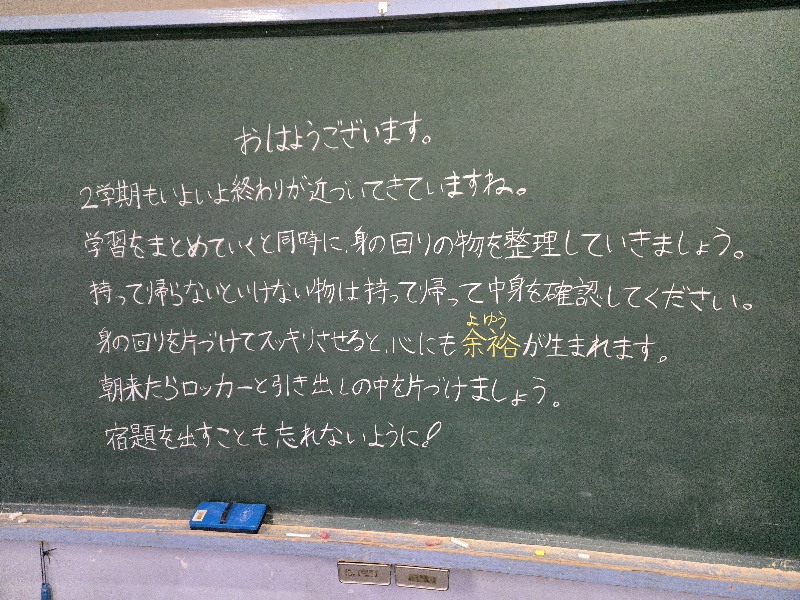 おはようございます。
2学期もいよいよ終わりが近づいてきていますね。
学習をまとめていくと同時に、身の回りの物を整理していきましょう。
持って帰らないといけない物は持って帰って中身を確認してください。
身の回りを片づけてスッキリさせると、心にも余裕が生まれます。
よゆう
朝来たらロッカーと引き出しの中を片づけましょう。
宿題を出すことも忘れないように!